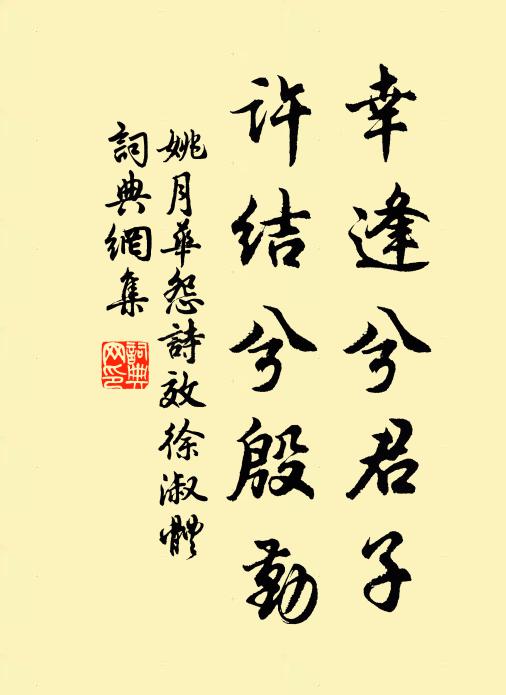 幸逢兮君子
許結兮殷勤
姚月華怨詩效徐淑體
詞典網集
詞典網印